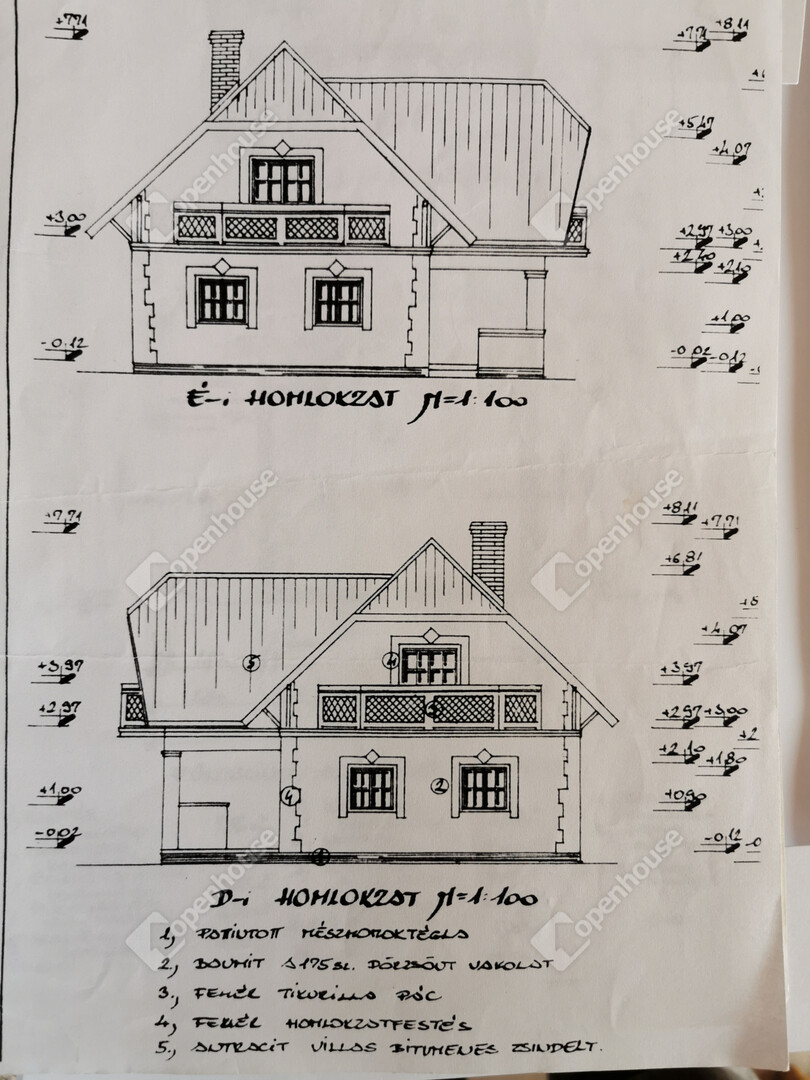 +7,71
+8,11
+7,71
+5,47
+4,07
+3,00
+2,97 +3,00
+2,40 +2,10
+1,00
-0,12
-0,02 -0,12
É-i HOMLOKZAT M=1:100
+7,71
+8,11
+7,71
+6,81
+4,07
+3,97
+3,97
+2,97
+2,97 +3,00
+2,10
+1,80
+1,00
+0,90
-0,02
-0,12
5
4
3
2
4
1
D-i HOMLOKZAT M=1:100
1., MÉSZHOMOKTÉGLA
2., BAUMIT DÖRZSÖLT VAKOLAT
3., FEHÉR TIKURILLA PÁC
4., FEHÉR HOMLOKZATFESTÉS
5., ANTRACIT VILLAS BITUMENES ZSINDELY.
Openhouse
Openhouse
Openhouse
Openhouse
Openhouse
Openhouse